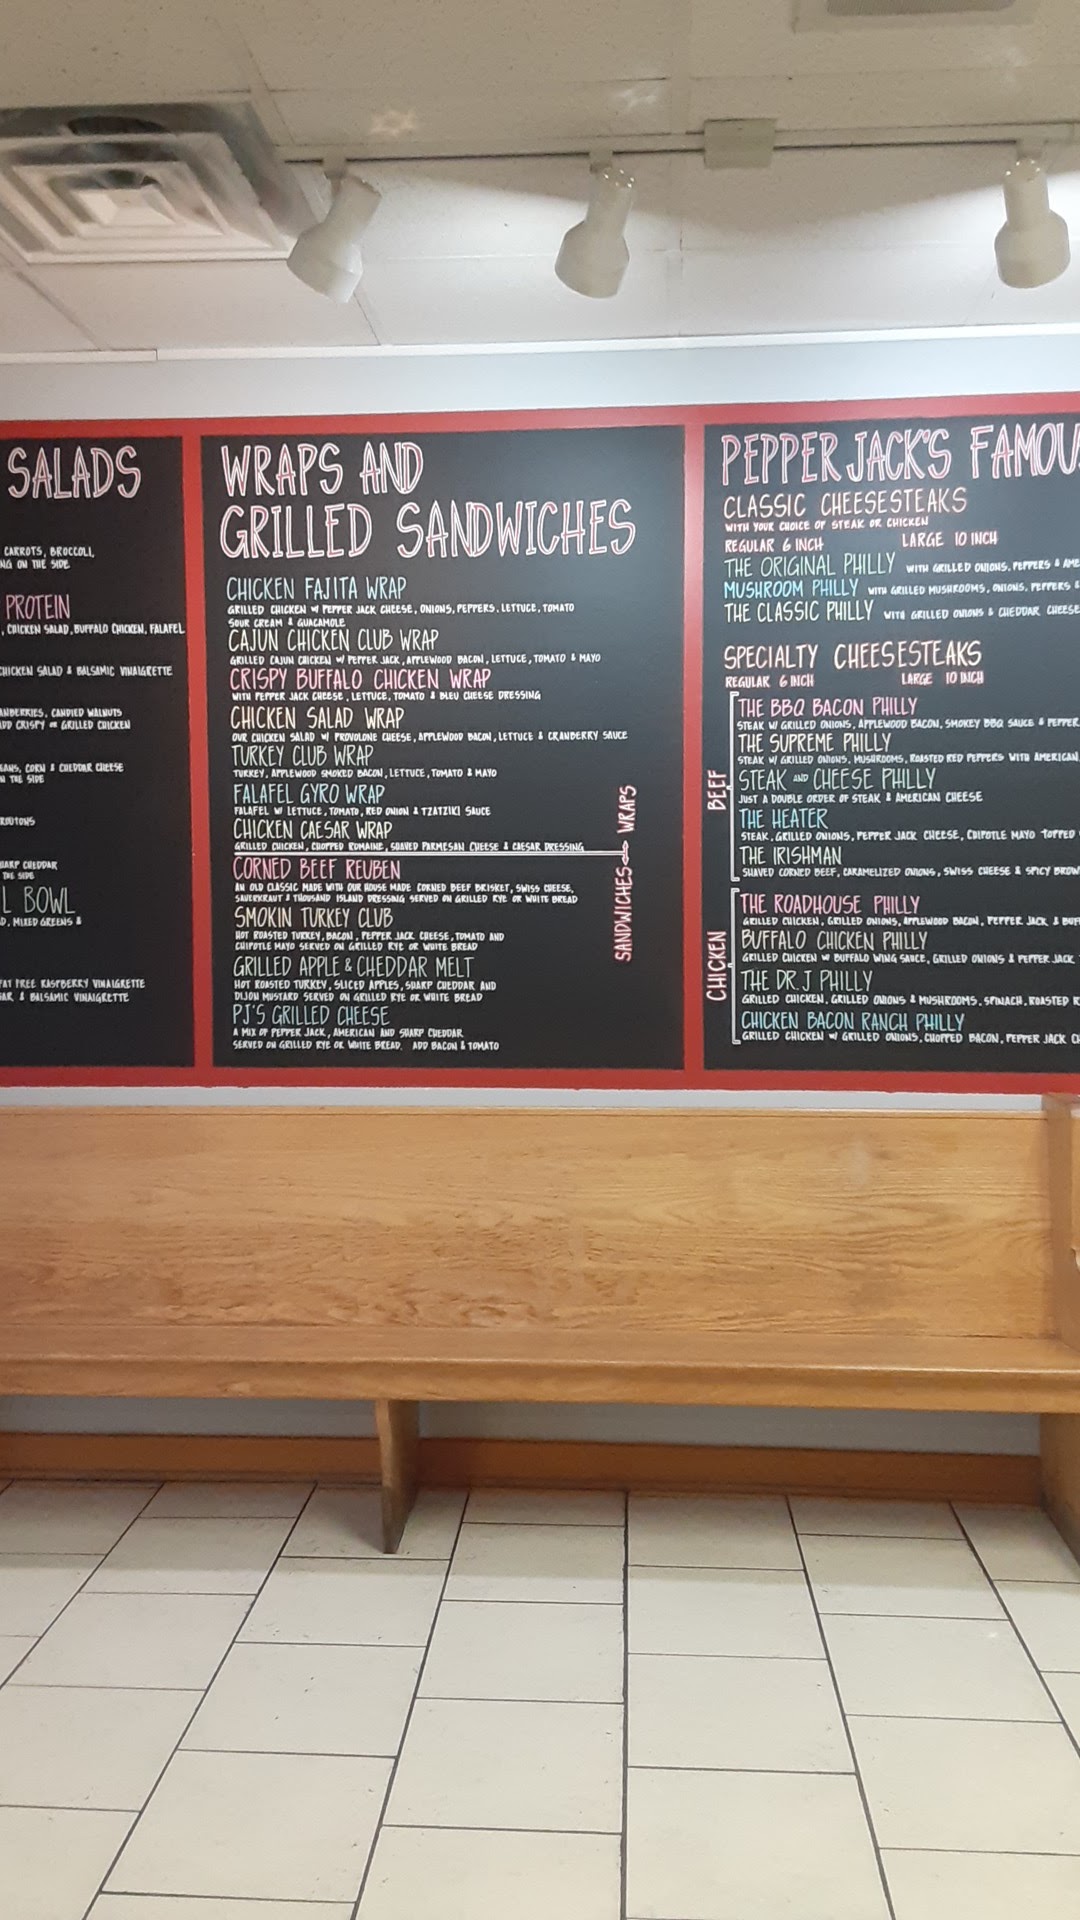 SALADS
CARROTS, BROCCOLI,
ON THE SIDE
PROTEIN
, CHICKEN SALAD, BUFFALO CHICKEN, FALAFEL
CHICKEN SALAD & BALSAMIC VINAIGRETTE
CANDIED WALNUTS
CRISPY OR GRILLED CHICKEN
CORN & CHEDDAR CHEESE
THE SIDE
CHEDDAR
THE SIDE
BOWL
MIXED GREENS &
FREE RASPBERRY VINAIGRETTE
& BALSAMIC VINAIGRETTE
WRAPS AND
GRILLED SANDWICHES
CHICKEN FAJITA WRAP
GRILLED CHICKEN W/ PEPPER JACK CHEESE, ONIONS, PEPPERS, LETTUCE, TOMATO
SOUR CREAM & GUACAMOLE
CAJUN CHICKEN CLUB WRAP
GRILLED CAJUN CHICKEN W/ PEPPER JACK, APPLEWOOD BACON, LETTUCE, TOMATO & MAYO
CRISPY BUFFALO CHICKEN WRAP
WITH PEPPER JACK CHEESE, LETTUCE, TOMATO & BLEU CHEESE DRESSING
CHICKEN SALAD WRAP
OUR CHICKEN SALAD W/ PROVOLONE CHEESE, APPLEWOOD BACON, LETTUCE & CRANBERRY SAUCE
TURKEY CLUB WRAP
TURKEY, APPLEWOOD SMOKED BACON, LETTUCE, TOMATO & MAYO
FALAFEL GYRO WRAP
FALAFEL W/ LETTUCE, TOMATO, RED ONION & TZATZIKI SAUCE
CHICKEN CAESAR WRAP
GRILLED CHICKEN, CHOPPED ROMAINE, SHAVED PARMESAN CHEESE & CAESAR DRESSING
WRAPS
SANDWICHES
CORNED BEEF REUBEN
AN OLD CLASSIC MADE WITH OUR HOUSE MADE CORNED BEEF BRISKET, SWISS CHEESE,
SAUERKRAUT & THOUSAND ISLAND DRESSING SERVED ON GRILLED RYE OR WHITE BREAD
SMOKIN TURKEY CLUB
HOT ROASTED TURKEY, BACON, PEPPER JACK CHEESE, TOMATO AND
CHIPOTLE MAYO SERVED ON GRILLED RYE OR WHITE BREAD
GRILLED APPLE & CHEDDAR MELT
HOT ROASTED TURKEY, SLICED APPLES, SHARP CHEDDAR AND
DIJON MUSTARD SERVED ON GRILLED RYE OR WHITE BREAD
PJ'S GRILLED CHEESE
A MIX OF PEPPER JACK, AMERICAN AND SHARP CHEDDAR
SERVED ON GRILLED RYE OR WHITE BREAD. ADD BACON & TOMATO
PEPPER JACK'S FAMOU
CLASSIC CHEESESTEAKS
WITH YOUR CHOICE OF STEAK OR CHICKEN
REGULAR 6 INCH LARGE 10 INCH
THE ORIGINAL PHILLY WITH GRILLED ONIONS, PEPPERS & AME
MUSHROOM PHILLY WITH GRILLED MUSHROOMS, ONIONS, PEPPERS &
THE CLASSIC PHILLY WITH GRILLED ONIONS & CHEDDAR CHEESE
SPECIALTY CHEESESTEAKS
REGULAR 6 INCH LARGE 10 INCH
BEEF
THE BBQ BACON PHILLY
STEAK W/ GRILLED ONIONS, APPLEWOOD BACON, SMOKEY BBQ SAUCE & PEPPER
THE SUPREME PHILLY
STEAK W/ GRILLED ONIONS, MUSHROOMS, ROASTED RED PEPPERS WITH AMERICAN
STEAK AND CHEESE PHILLY
JUST A DOUBLE ORDER OF STEAK & AMERICAN CHEESE
THE HEATER
STEAK, GRILLED ONIONS, PEPPER JACK CHEESE, CHIPOTLE MAYO TOPPED
THE IRISHMAN
SHAVED CORNED BEEF, CARAMELIZED ONIONS, SWISS CHEESE & SPICY BROW
CHICKEN
THE ROADHOUSE PHILLY
GRILLED CHICKEN, GRILLED ONIONS, APPLEWOOD BACON, PEPPER JACK & BUF
BUFFALO CHICKEN PHILLY
GRILLED CHICKEN W/ BUFFALO WING SAUCE, GRILLED ONIONS & PEPPER JACK
THE DR. J PHILLY
GRILLED CHICKEN, GRILLED ONIONS & MUSHROOMS, SPINACH, ROASTED R
CHICKEN BACON RANCH PHILLY
GRILLED CHICKEN W/ GRILLED ONIONS, CHOPPED BACON, PEPPER JACK CH